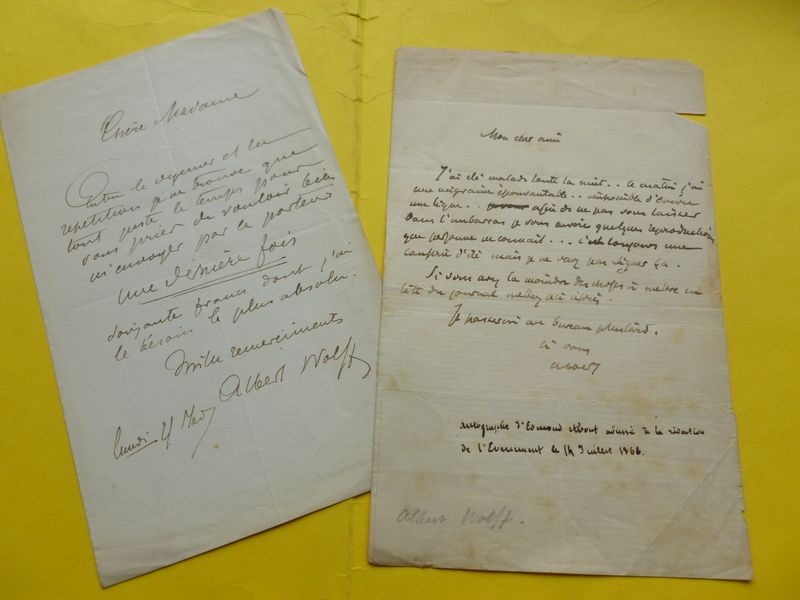 Chère Madame
Entre le déjeuner et la
répétition je ne trouve que
tout juste le temps pour
vous prier de vouloir bien
m'envoyer par le porteur
une dernière fois
soixante francs dont j'ai
le besoin le plus absolu.
Mille remerciments
Albert Wolff
lundi 21 Mars
Mon cher ami
J'ai été malade toute la nuit.. ce matin j'ai
une migraine épouvantable.. impossible d'écrire
une ligne.. afin de ne pas vous laisser
dans l'embarras je vous envoie quelques reproductions
que personne ne connait... c'est toujours une
d'été mais je ne veux pas signer ça.
Si vous avez la moindre des choses à mettre en
tête du journal mettez
Je passerai au bureau plus tard.
à vous
Autographe d'Edmond About adressé à la rédaction
de l'Evenement le 14 Juillet 1866.
Albert Wolff.